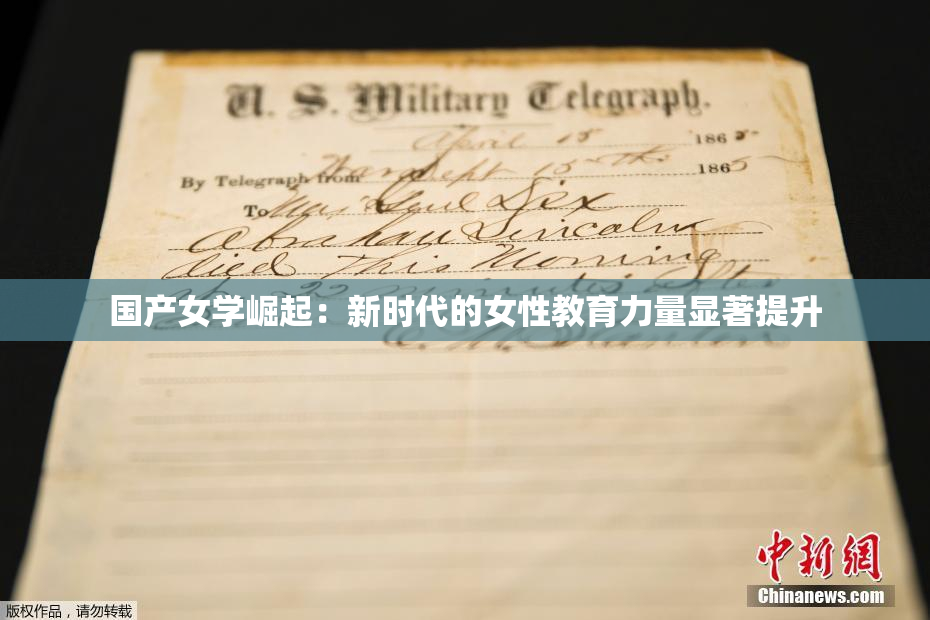 U. S. Military Telegraph.
April 15 1865
By Telegraph from War Dept 15th 1865
To Maj Genl Dix
Abraham Lincoln
died This Morning
22 minutes after
国产女学崛起：新时代的女性教育力量显著提升
E. M. Stanton
中新網
Chinanews.com
版权作品，请勿转载